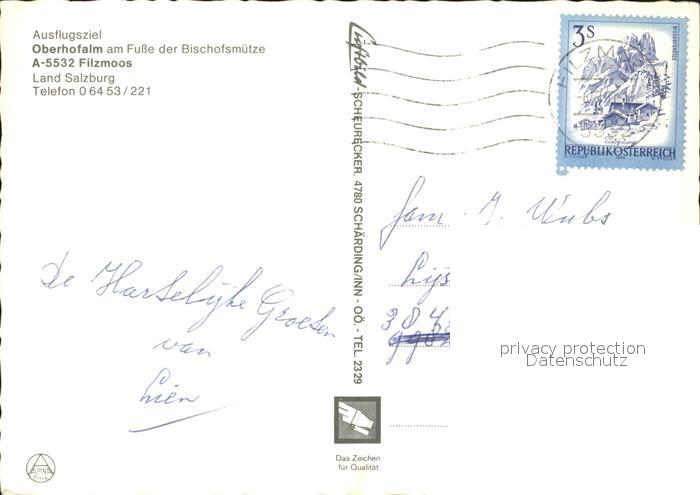 Ausflugsziel
Oberhofalm am Fuße der Bischofsmütze
A-5532 Filzmoos
Land Salzburg
Telefon 0 64 53 / 221
De Hartelijke Groeten
van
Lien
ALPINA
Luftbild-SCHEURECKER, 4780 SCHÄRDING/INN - OÖ. - TEL. 2329
Das Zeichen
für Qualität
FILZMOOS
5532
3 S
BISCHOFSMÜTZE
REPUBLIK ÖSTERREICH
Fam. J.
privacy protection
Datenschutz